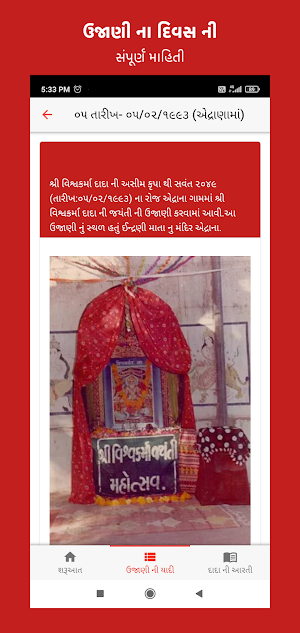 ઉજાણી ના દિવસ ની
સંપૂર્ણ માહિતી
5:33 PM
૦૫ તારીખ- ૦૫/૦૨/૧૯૯૩ (એદ્રાણામાં)
શ્રી વિશ્વકર્મા દાદા ની અસીમ કૃપા થી સવંત ૨૦૪૯
(તારીખ:૦૫/૦૨/૧૯૯૩) ના રોજ એદ્રાના ગામમાં શ્રી
વિશ્વકર્મા દાદા ની જયંતી ની ઉજાણી કરવામાં આવી.આ
ઉજાણી નું સ્થળ હતું ઈન્દ્રણી માતા નુ મંદિર એદ્રાના.
શ્રી વિશ્વકર્મા જયંતી
મહોત્સવ.
શરૂઆત
ઉજાણી ની યાદી
દાદા ની આરતી